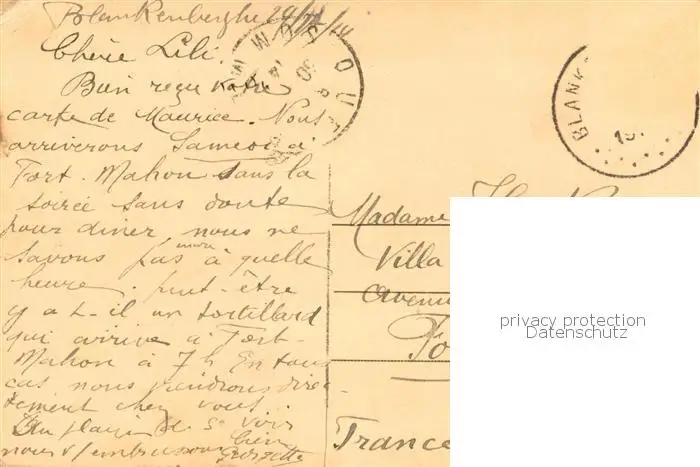 Blankenberghe
Chère Lili.
Bien reçu votre
carte de Maurice. Nous
arriverons Samedi à
Fort. Mahon dans la
soirée sans doute
pour diner nous ne
savons pas encore à quelle
heure. peut-être
y a t-il un tortillard
qui arrive à Fort-
Mahon à 7h En tous
cas nous viendrons direc
tement chez vous.
Au plaisir de se voir
nous v/ embrassons bien
BLANK
Madame
Villa
Avenu
Fo
France
privacy protection
Datenschutz